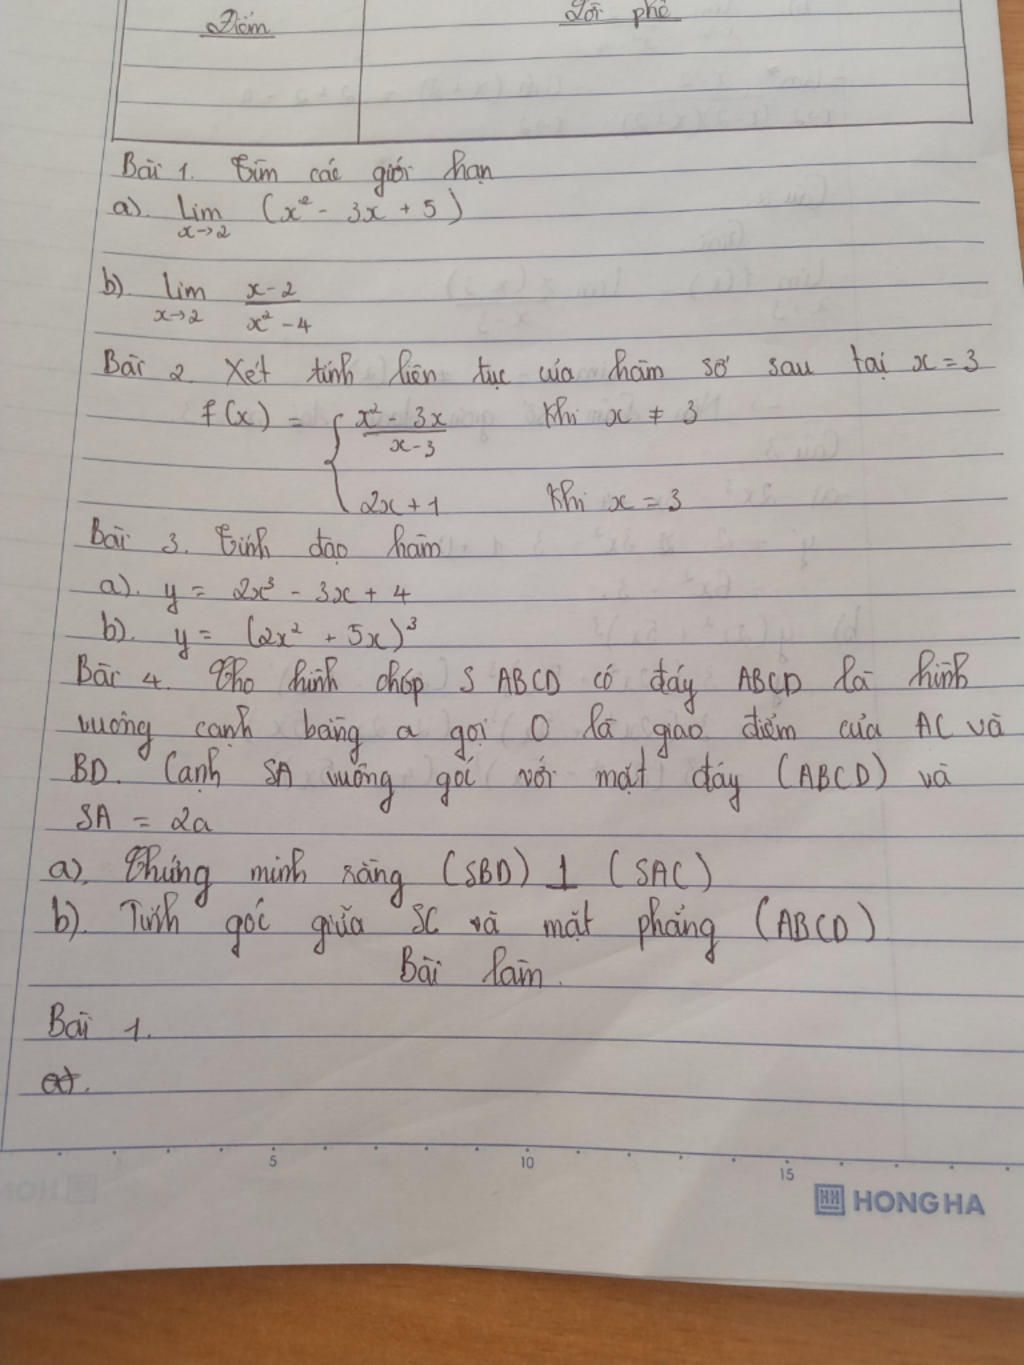 Điểm
Lời phê
Bài 1. Tìm các giới hạn
a). lim (x² - 3x + 5)
x→2
b). lim x-2
x→2 x² - 4
Bài 2. Xét tính liên tục của hàm số sau tại x = 3
f(x) = { x² - 3x khi x ≠ 3
x - 3
2x + 1 khi x = 3
Bài 3. Tính đạo hàm
a). y = 2x³ - 3x + 4
b). y = (2x² + 5x)³
Bài 4. Cho hình chóp S ABCD có đáy ABCD là hình
vuông cạnh bằng a gọi O là giao điểm của AC và
BD. Cạnh SA vuông góc với mặt đáy (ABCD) và
SA = 2a
a). Chứng minh rằng (SBD) ⊥ (SAC)
b). Tính góc giữa SC và mặt phẳng (ABCD)
Bài làm.
Bài 1.
a).
5 10 15
HH HONG HA